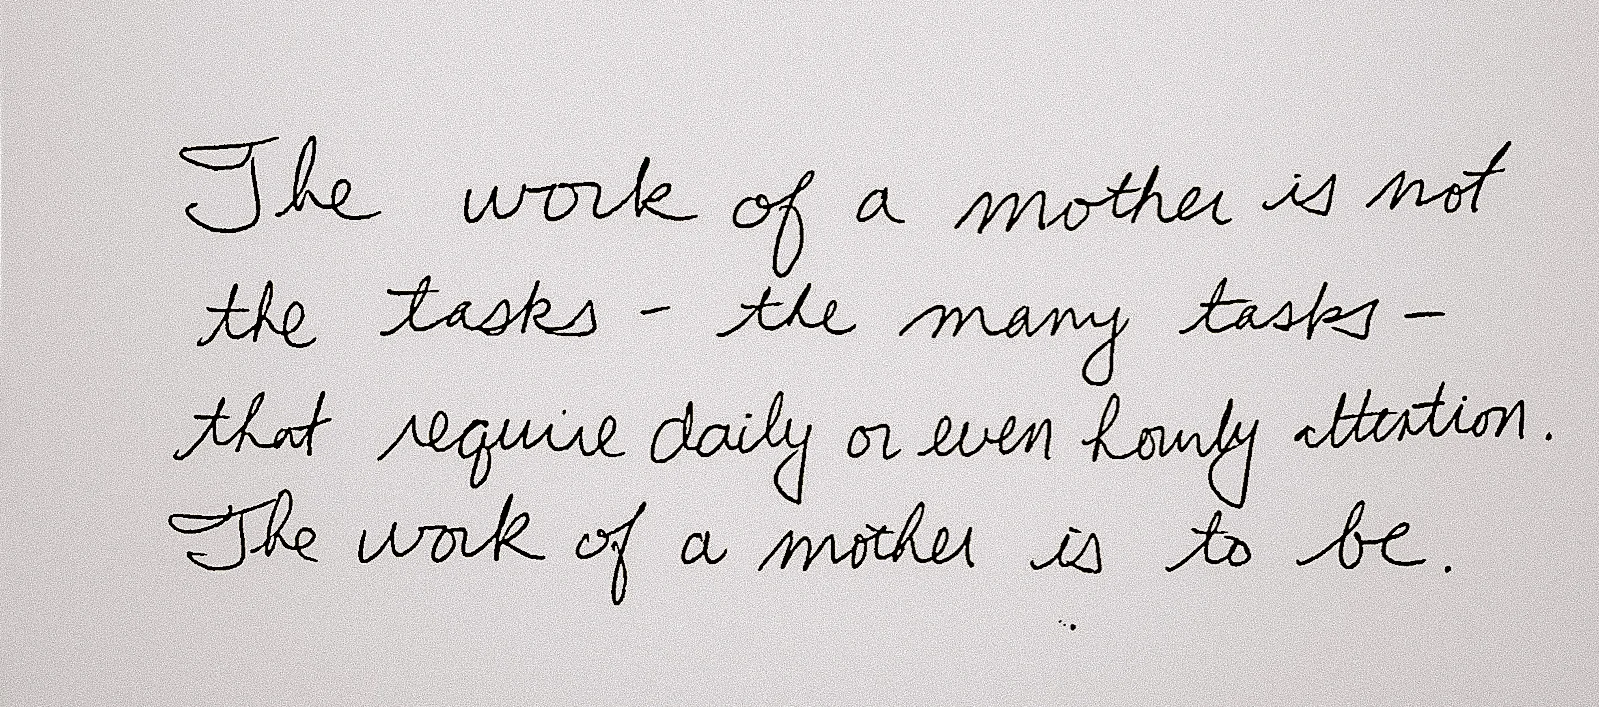 The work of a mother is not
the tasks - the many tasks -
that require daily or even hourly attention.
The work of a mother is to be.